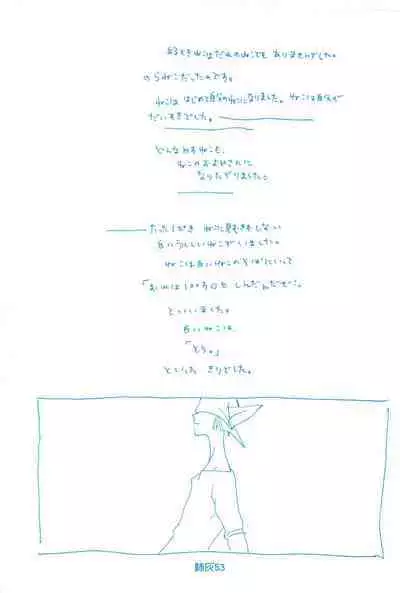 あるとき ねこはだれのねこでも ありませんでした。
のらねこだったのです。
ねこは はじめて自分のねこになりました。ねこは自分が
だいすきでした。
どんなめすねこも、
ねこのおよめさんに
なりたがりました。
たった1ぴき ねこに見むきもしない
白いうつくしいねこがいました。
ねこは白いねこのそばにいって
「おれは100万回も しんだんだぜ!」
といいました。
白いねこは
「そう。」
といった きりでした。
肺灰53